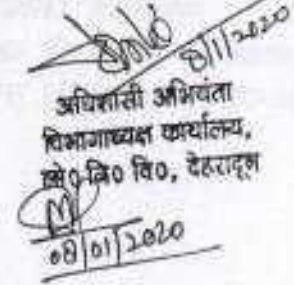 8/1/2020
अधिशासी अभियंता
विभागाध्यक्ष कार्यालय,
लो०नि० वि०, देहरादून
08/01/2020